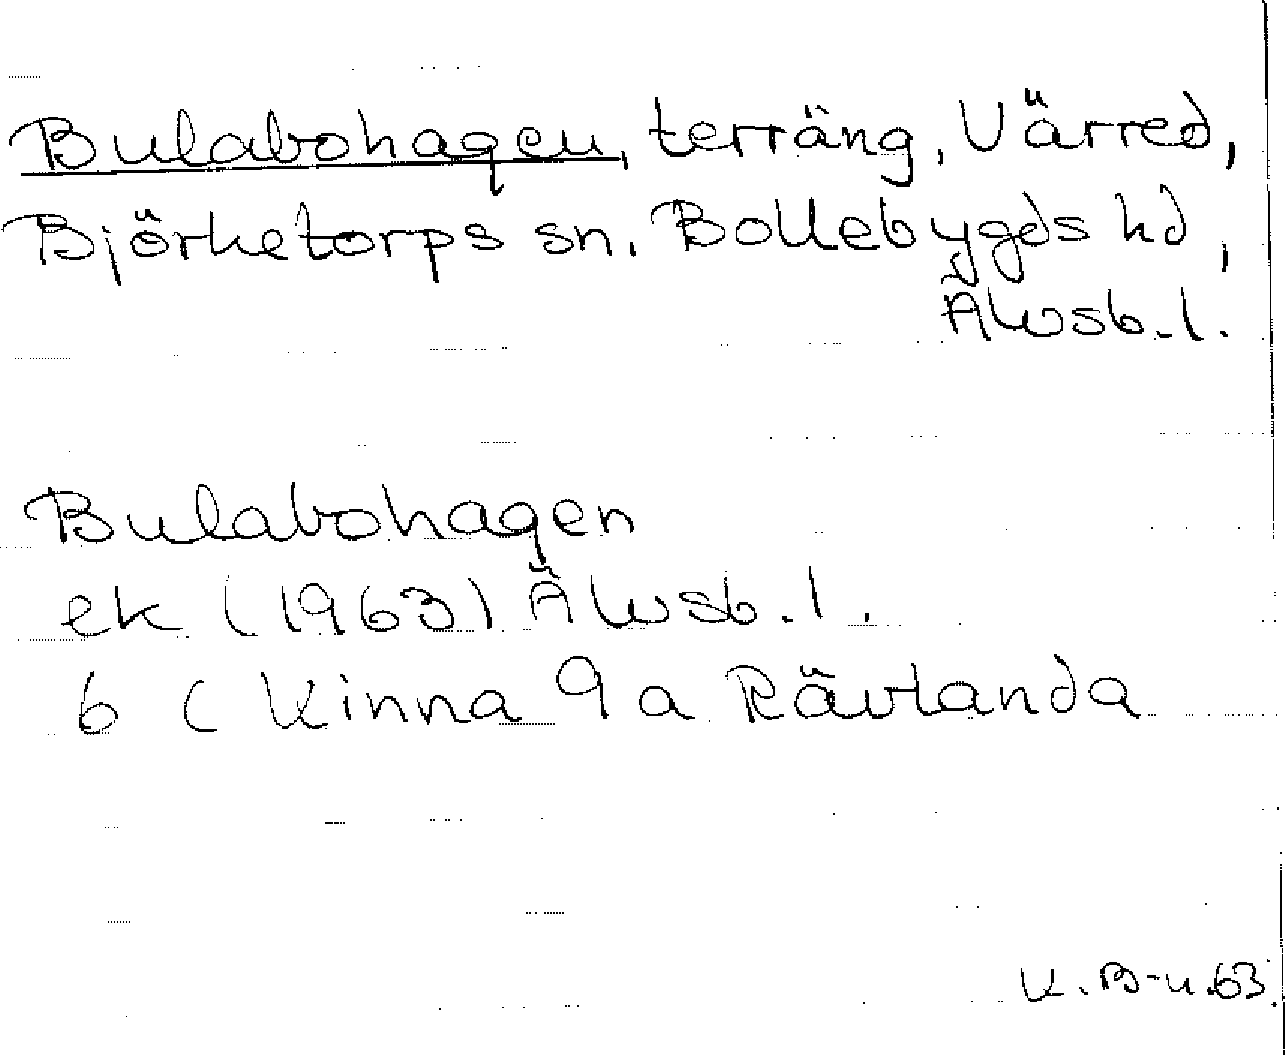 Bulabohagen, terräng, Värred,
Björketorps sn. Bollebygds hd,
Älvsb. l.
Bulabohagen
ek (1963) Älvsb. l.
6 ( Kinna 9 a Rävlanda
K. B-n. 63.